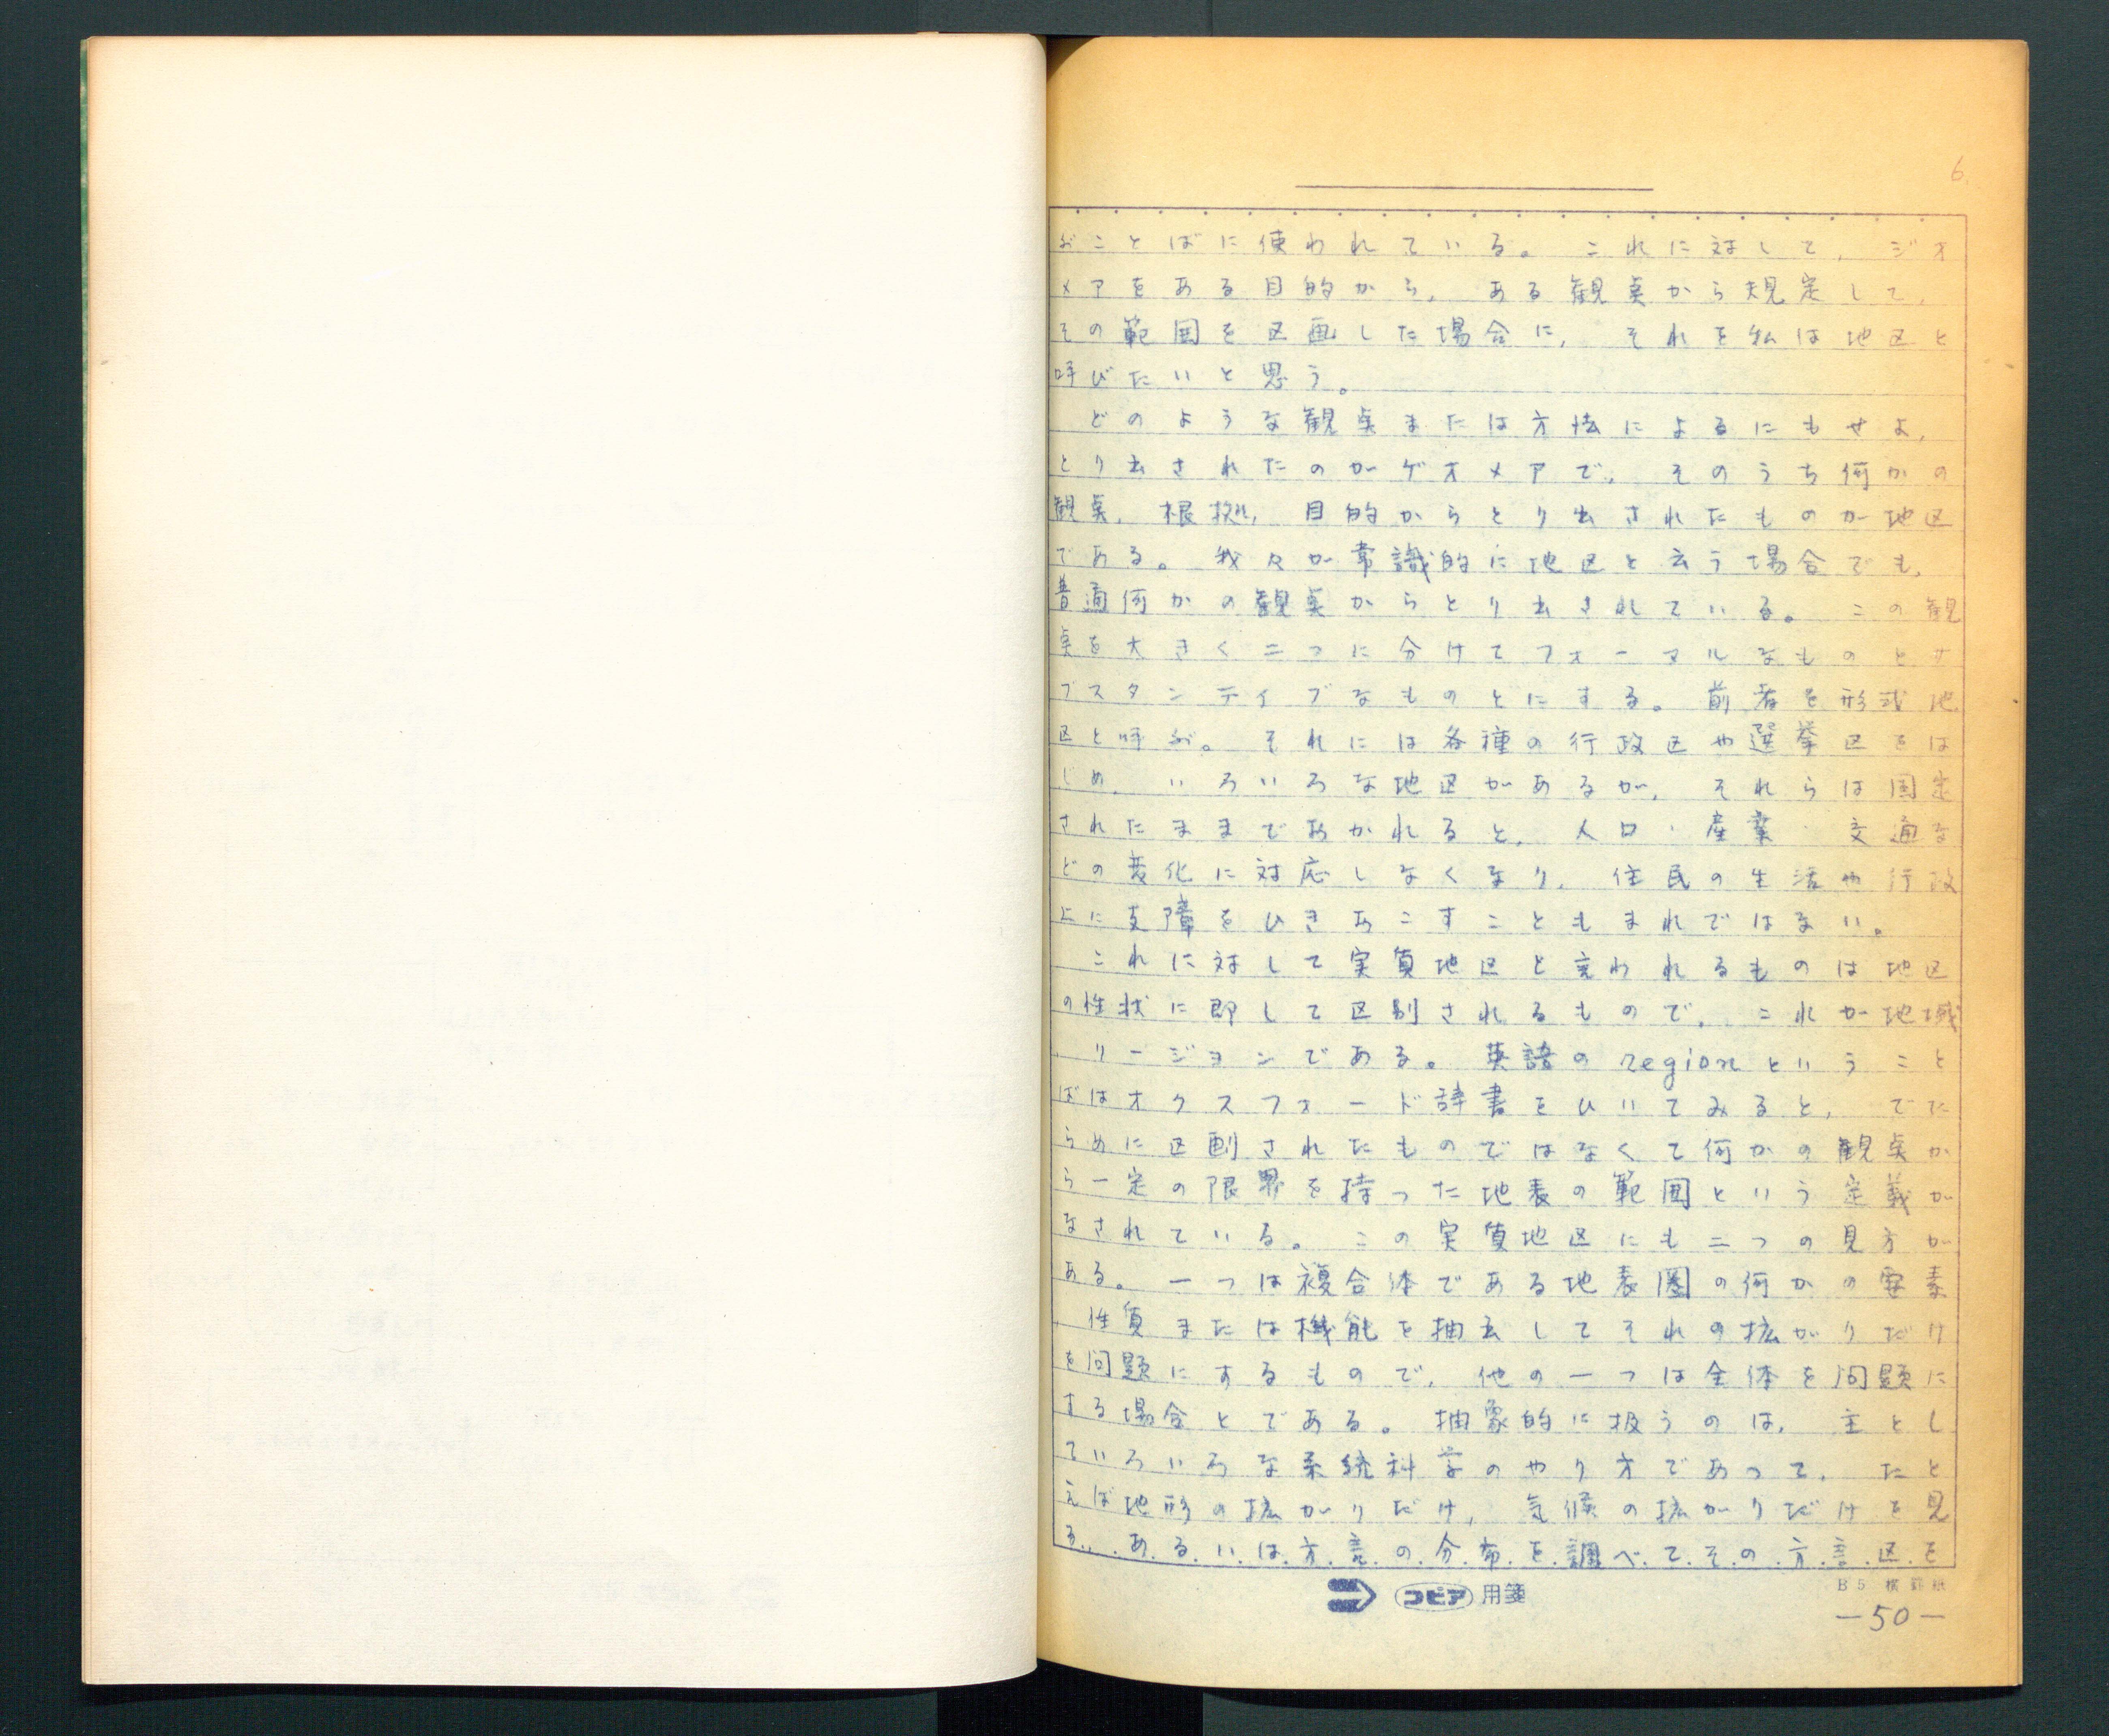 6.
ぶことばに使われている。これに対して，ジオ
メアをある目的から，ある観点から規定して，
その範囲を区画した場合に，それを私は地区と
呼びたいと思う。
どのような観点または方法によるにもせよ，
とり出されたのがゲオメアで，そのうち何かの
観点，根拠，目的からとり出されたものが地区
である。我々が常識的に地区と云う場合でも，
普通何かの観点からとり出されている。この観
点を大きく二つに分けてフォーマルなものとサ
ブスタンティブなものとにする。前者を形式地
区と呼ぶ。それには各種の行政区や選挙区をは
じめ，いろいろな地区があるが，それらは固定
されたままでおかれると，人口・産業・交通な
どの変化に対応しなくなり，住民の生活や行政
上に支障をひきおこすこともまれではない。
これに対して実質地区と言われるものは地区
の性状に即して区別されるもので，これが地域
，リージョンである。英語のregionというこ と
ばはオクスフォード辞書をひいてみると，でた
らめに区劃されたものではなくて何かの観点か
ら一定の限界を持った地表の範囲という定義が
なされている。この実質地区にも二つの見方が
ある。一つは複合体である地表圏の何かの要素
，性質または機能を抽出してそれの拡がりだけ
を問題にするもので，他の一つは全体を問題に
する場合とである。抽象的に扱うのは，主とし
ていろいろな系統科学のやり方であって，たと
えば地形の拡がりだけ，気候の拡がりだけを見
る，あるいは方言の分布を調べてその方言区を
コピア 用箋
B5 横罫紙
—50—